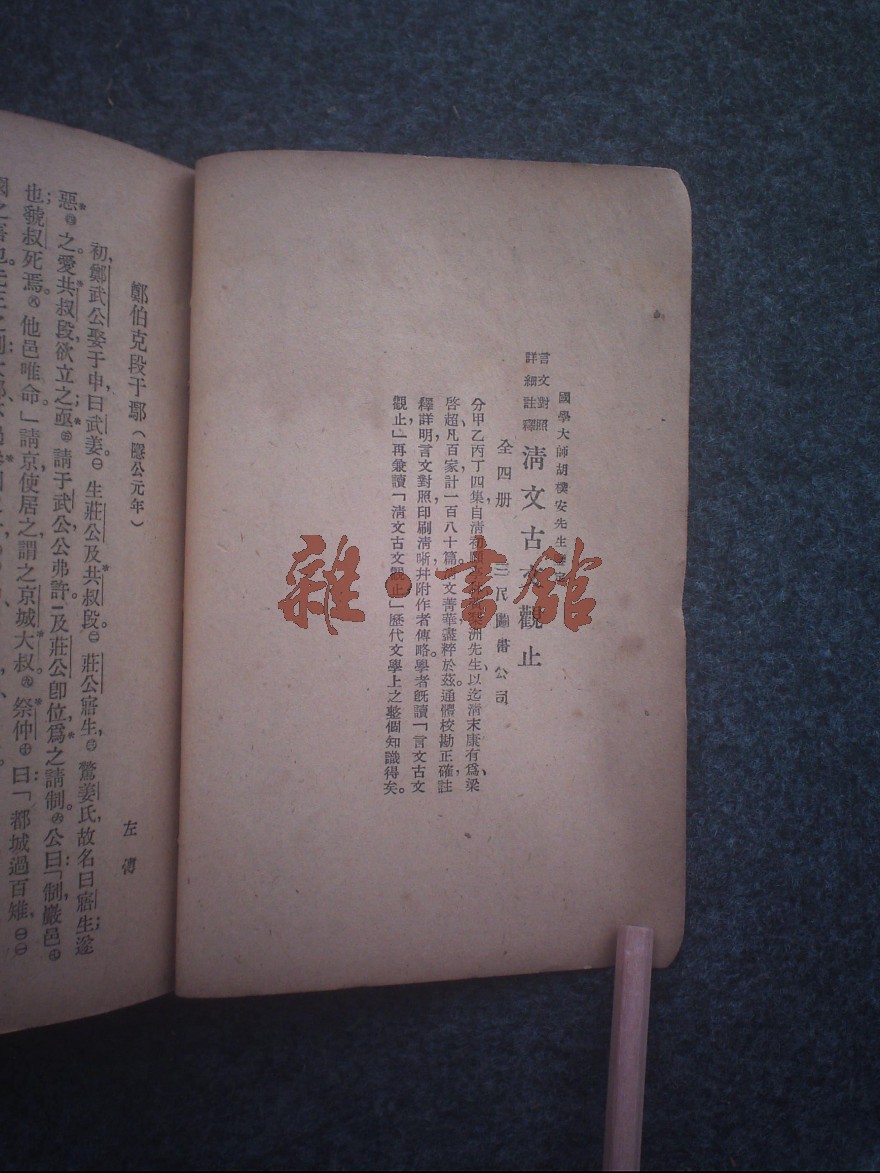 國學大師胡樸安先生
言文對照
詳細註釋
清文古文觀止
全四册 三民圖書公司
分甲乙丙丁四集自清初 洲先生以迄清末康有爲、梁
啓超凡百家計一百八十篇 文菁華盡粹於茲。通體校勘正確，註
釋詳明言文對照印刷清晰幷附作者傳略。學者旣讀「言文古文
觀止」再兼讀「清文古文觀止」歷代文學上之整個知識得矣。
鄭伯克段于鄢（隱公元年）
左傳
初，鄭武公娶于申，曰武姜。㊀生莊公及共叔段。㊁莊公寤生，㊂驚姜氏，故名曰寤生；遂
惡㊃之。愛共叔段，欲立之。亟㊄請于武公，公弗許。及莊公卽位，爲之請制。㊅公曰：「制，巖邑㊆
也；虢叔死焉。㊇他邑唯命」請京，使居之，謂之京城大叔。㊈祭仲㊉曰：「都城過百雉，
國之害也。先王之制：大都，不過
雜·書館